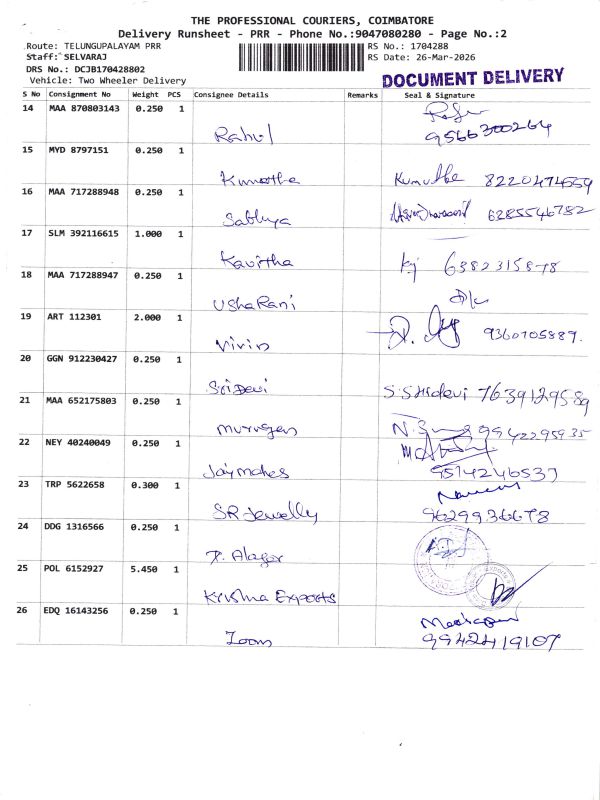 THE PROFESSIONAL COURIERS, COIMBATORE
Delivery Runsheet - PRR - Phone No.:9047080280 - Page No.:2
Route: TELUNGUPALAYAM PRR RS No.: 1704288
Staff: SELVARAJ RS Date: 26-Mar-2026
DRS No.: DCJB170428802
Vehicle: Two Wheeler Delivery
DOCUMENT DELIVERY
S No Consignment No Weight PCS Consignee Details Remarks Seal & Signature
14 MAA 870803143 0.250 1
Rahul 9566300264
15 MYD 8797151 0.250 1
Kumutha Kumutha 8220474559
16 MAA 717288948 0.250 1
Sathya 6285546782
17 SLM 392116615 1.000 1
Kavitha kj 6382315878
18 MAA 717288947 0.250 1
Usha Rani
19 ART 112301 2.000 1
Vivin 9360705889.
20 GGN 912230427 0.250 1
Sri Devi S.SHidevi 7639129589
21 MAA 652175803 0.250 1
murugan 9942295935
22 NEY 40240049 0.250 1
Jaymahes 9514246537
23 TRP 5622658 0.300 1
SR Jewelly 9629936678
24 DDG 1316566 0.250 1
Alagar
25 POL 6152927 5.450 1
Krishna Exports
26 EDQ 16143256 0.250 1
Zoom 9942419107